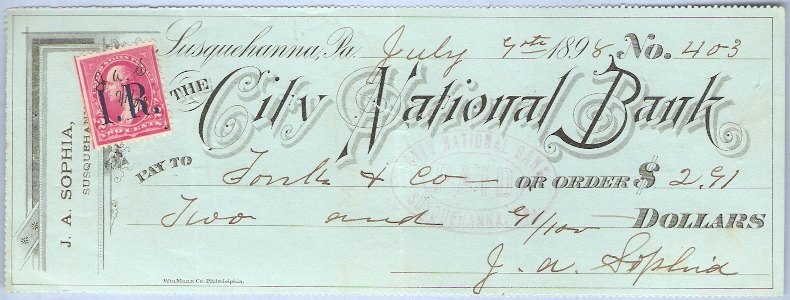 Susquehanna, Pa. July 7th 1898 No. 403
THE City National Bank
PAY TO Tonk & Co OR ORDER $ 2.91
Two and 91/100 DOLLARS
J. A. Sophia
J. A. SOPHIA,
SUSQUEHAN
I.R.
TWO CENTS
CITY NATIONAL BANK
SUSQUEHANNA,
Wm. Mann Co. Philadelphia.